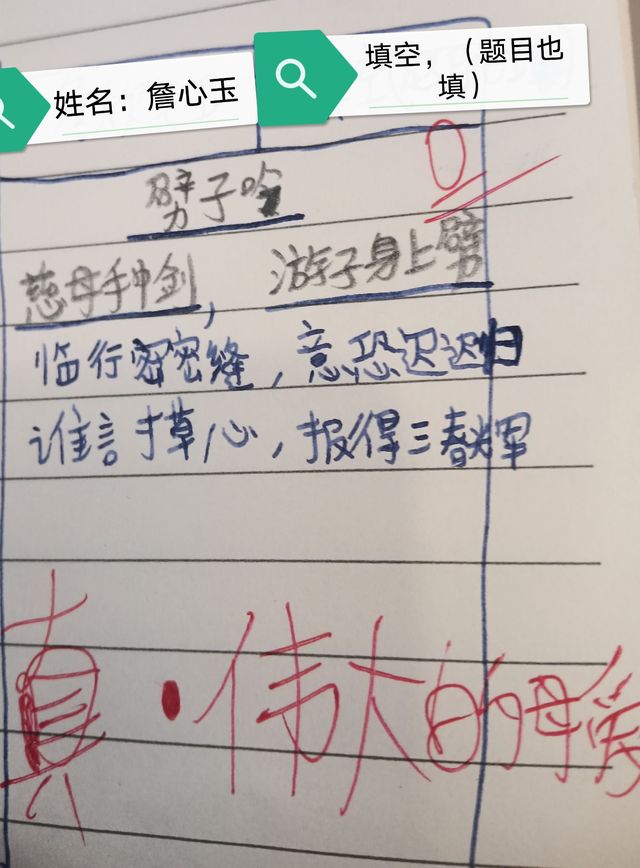 姓名：詹心玉
填空，（题目也
填）
0
劈子吟
慈母手中剑， 游子身上劈
临行密密缝，意恐迟迟归
谁言寸草心，报得三春辉
真·伟大的母爱